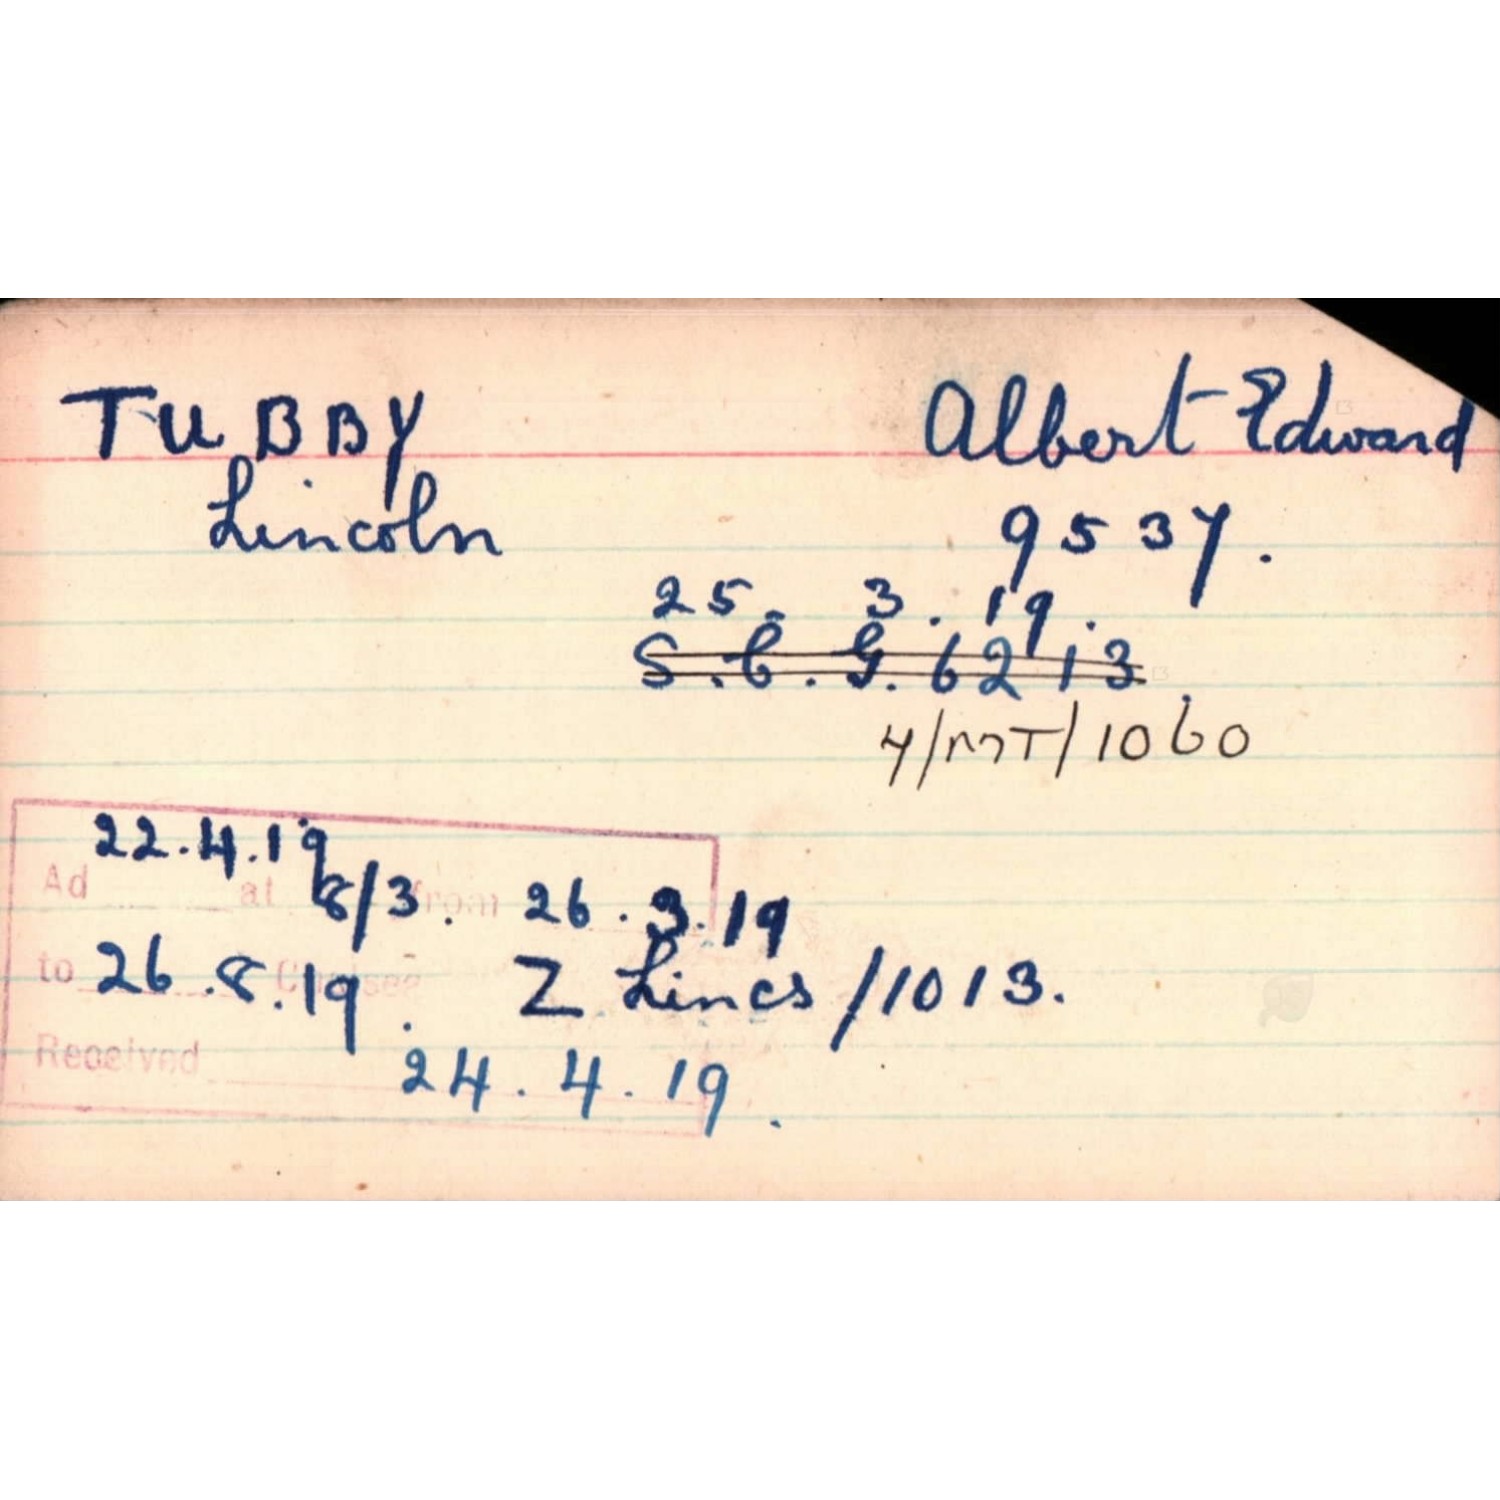 TUBBY Albert Edward
Lincoln 9537.
25. 3. 19.
S.C.G. 6213
4/MT/1060
22.4.19
Ad at 8/3. from 26.3.19
to 26.8.19. Chelsea Z Lincs/1013.
Received 24.4.19.